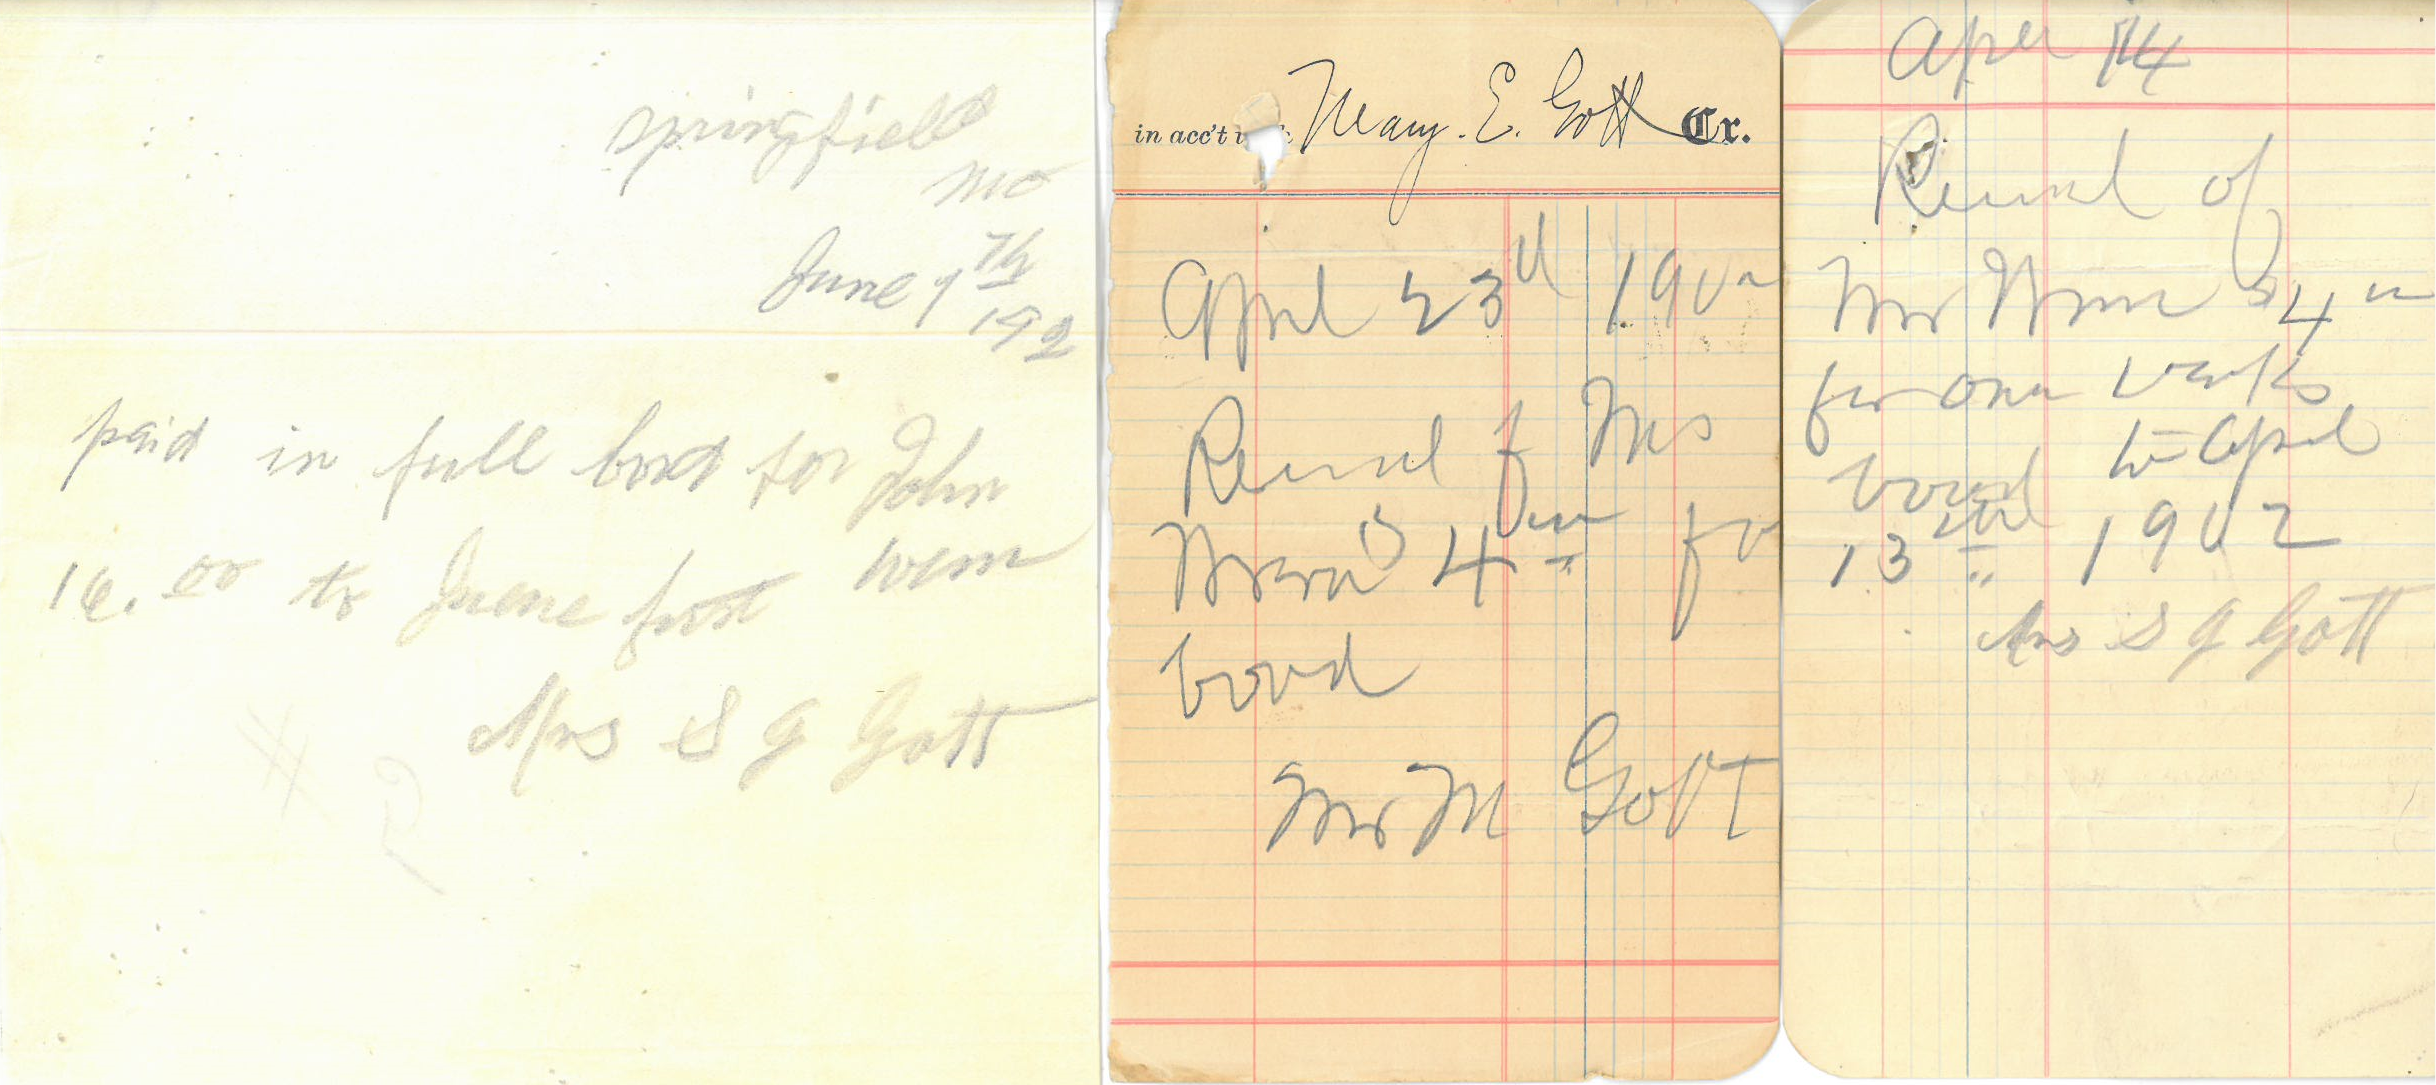 springfield
Mo
June 7th
192
paid in full bord for John
16.00 to Juene first
Mrs S G Gott
in acc't Mary. E. Gott Cr.
April 23d 190
Received of Mrs
$4 for
bord
Mrs M Gott
Aper 14
Received of
Mrs $4
for one weeks
bord to April
13 1902
Mrs S G Gott